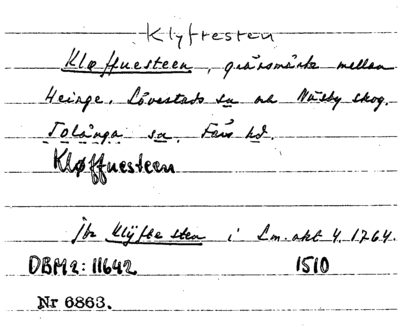 Klyftesten
Kløffuesteen, gränsmärke mellan
Heinge, Lövestads sn och Näsby skog.
Tolånga sn, Färs hd.
Kløffuesteen
Jbr Klÿfte sten i Lm. akt 4, 1764.
DBM 2: 11642 1510
Nr 6863.